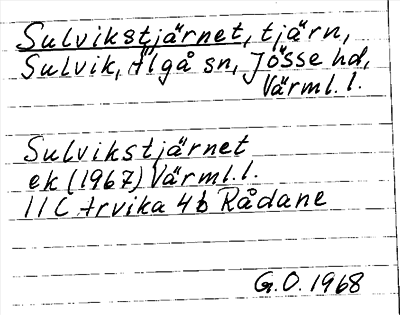 Sulvikstjärnet, tjärn,
Sulvik, Älgå sn, Jösse hd,
Värml. l.
Sulvikstjärnet
ek (1967) Värml. l.
11C Arvika 4b Rådane
G. O. 1968